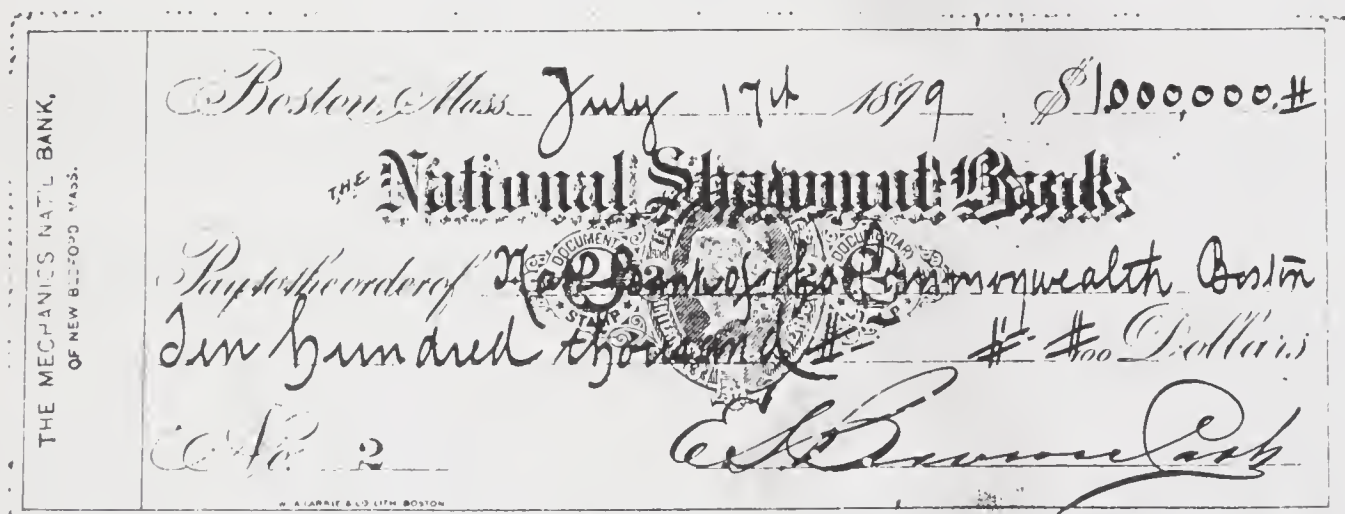 THE MECHANICS NAT'L BANK,
OF NEW BEDFORD MASS.
Boston, Mass. July 17th 1899 $1,000,000.#
THE National Shawmut Bank
Pay to the order of Nat Bank of the Commonwealth Boston
Ten hundred thousand # # #00 Dollars
No. 2
Cash
DOCUMENT
STAMP
2
LITH. BOSTON